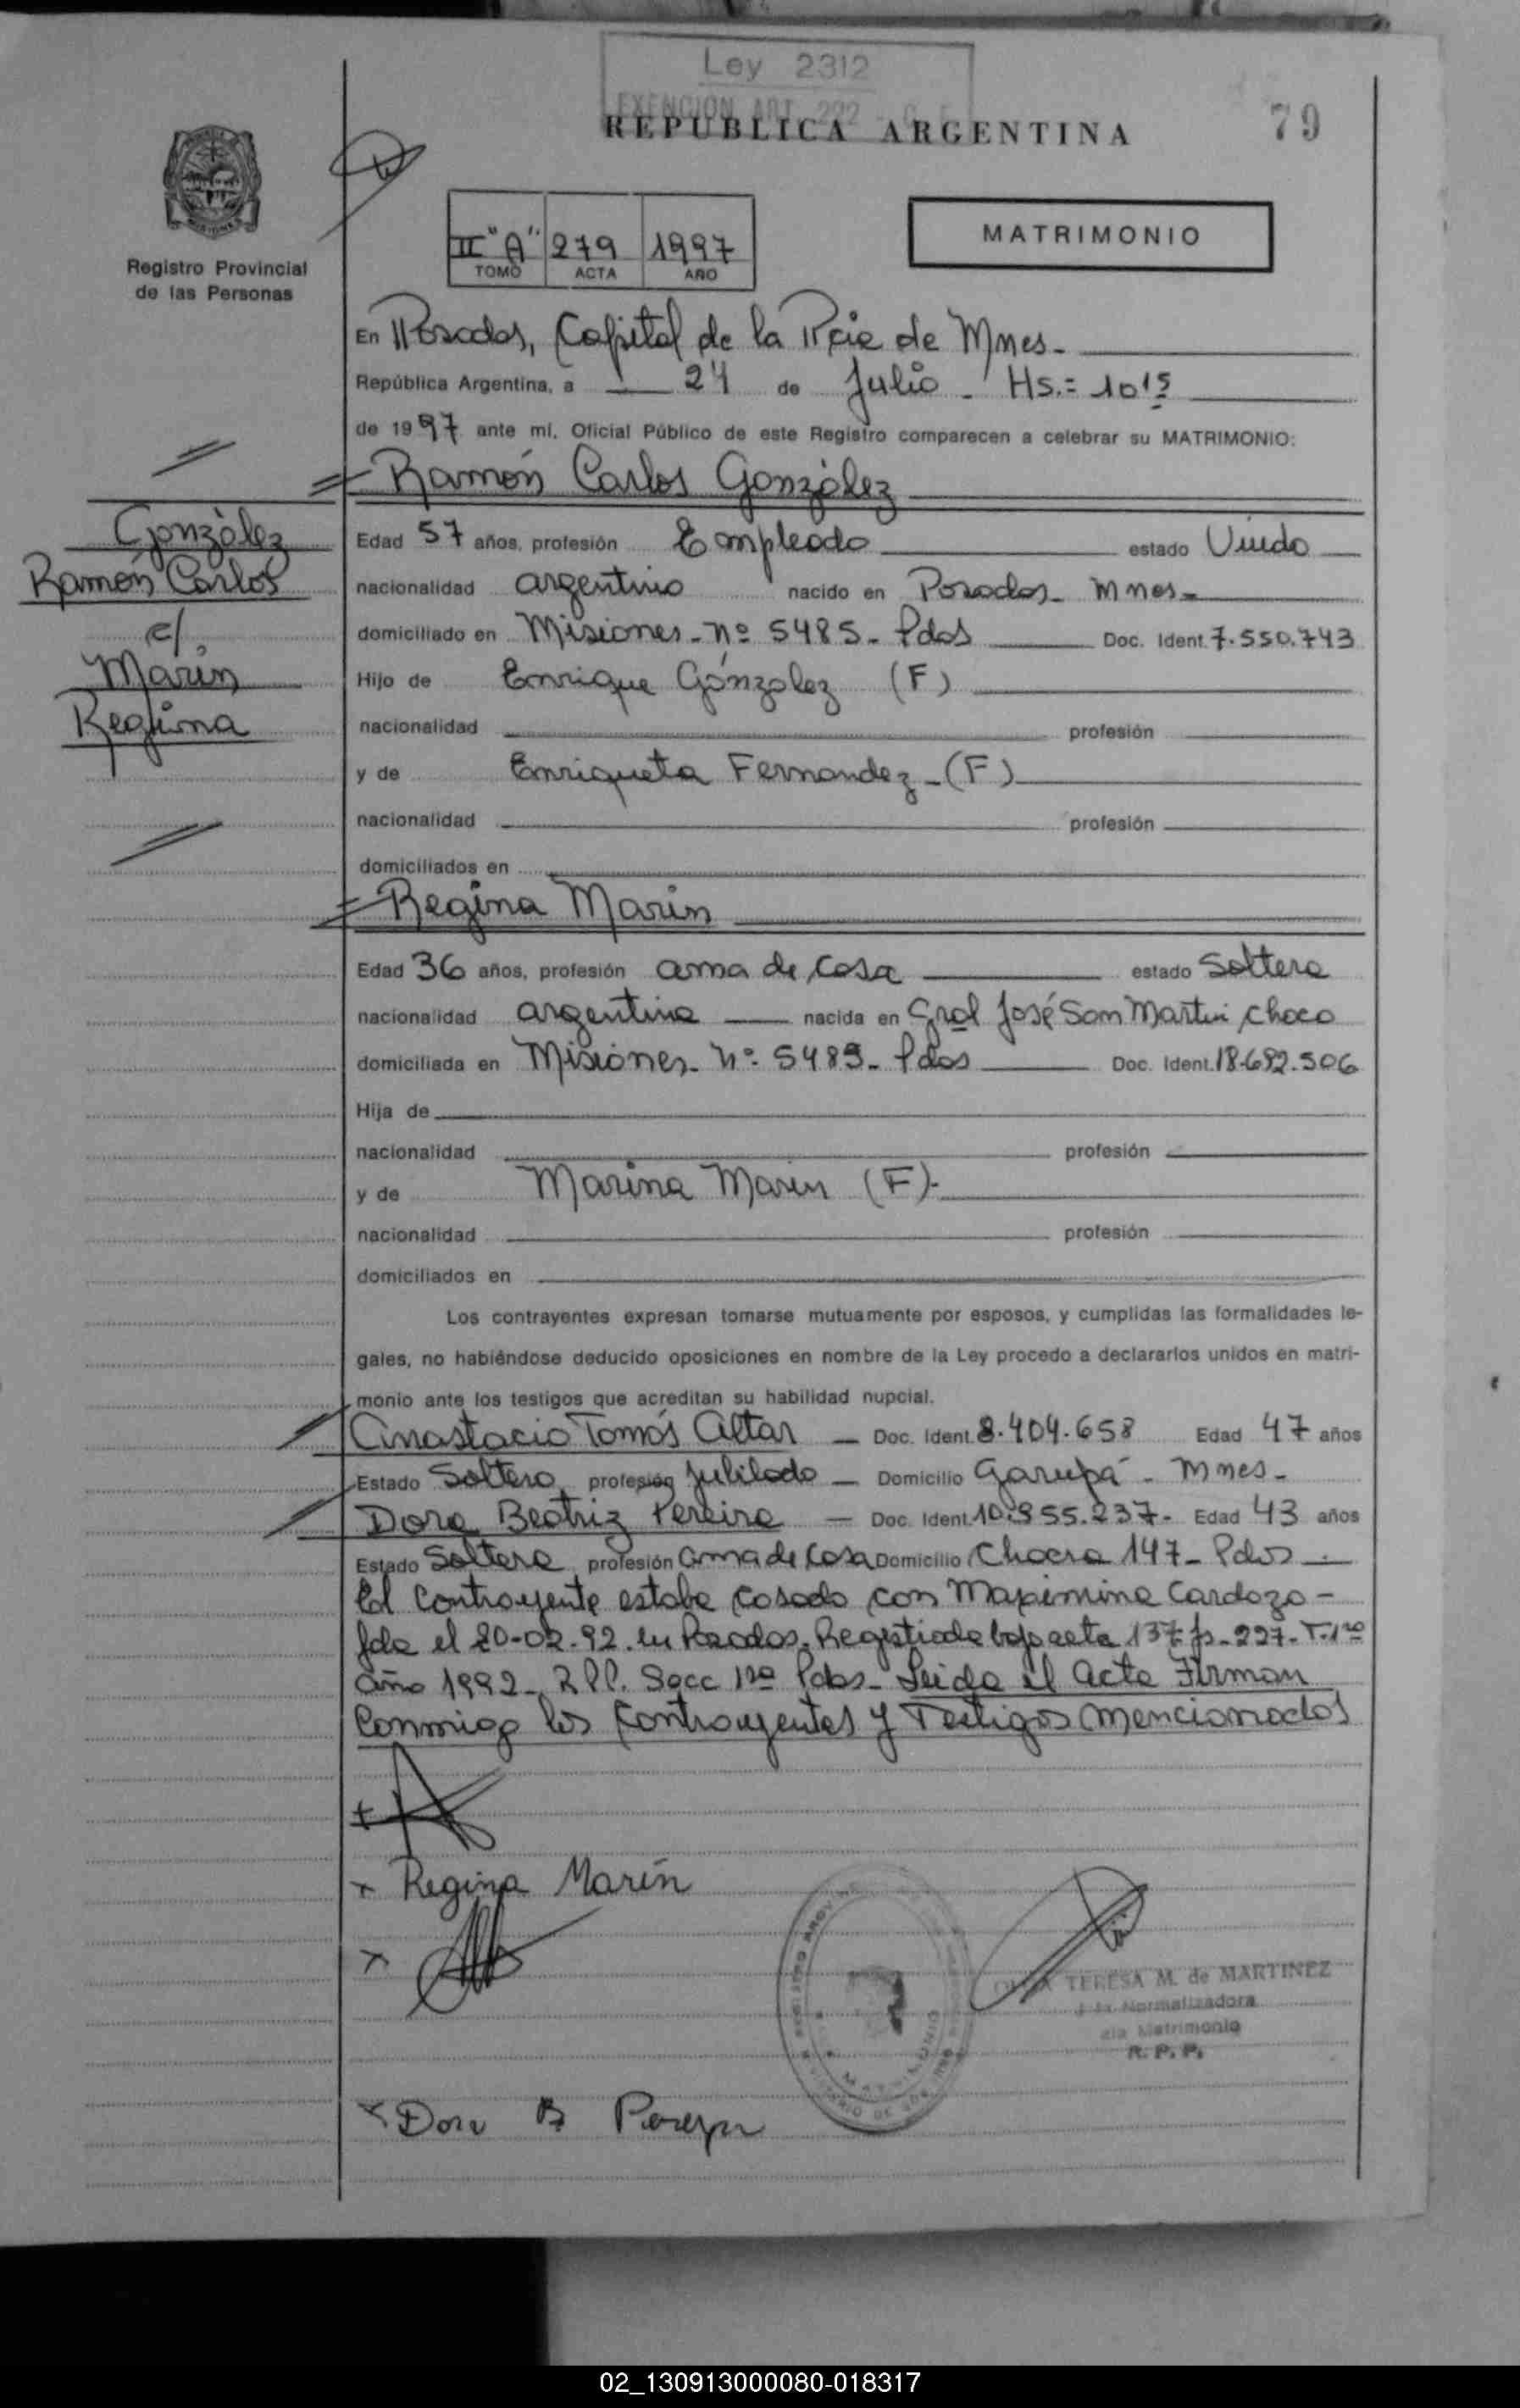 Ley 2312
EXENCION ART. 222
REPUBLICA ARGENTINA
79
Registro Provincial
de las Personas
II "A" 279 1997
TOMO ACTA AÑO
MATRIMONIO
En Posadas, Capital de la Pcia de Mnes-
República Argentina, a 24 de Julio - Hs.= 10 15
de 1997 ante mí, Oficial Público de este Registro comparecen a celebrar su MATRIMONIO:
Ramón Carlos González
González
Ramón Carlos
c/
Marin
Regina
Edad 57 años, profesión Empleado estado Viudo
nacionalidad argentino nacido en Posadas- Mnes-
domiciliado en Misiones- nº 5485- Pdas Doc. Ident. 7.550.743
Hijo de Enrique González (F)
nacionalidad profesión
y de Enriqueta Fernandez-(F)
nacionalidad profesión
domiciliados en
Regina Marin
Edad 36 años, profesión ama de casa estado Soltera
nacionalidad argentina nacida en Gral José San Martin Chaco
domiciliada en Misiones- nº 5485- Pdas Doc. Ident. 18.692.506
Hija de
nacionalidad profesión
y de Marina Marin (F)-
nacionalidad profesión
domiciliados en
Los contrayentes expresan tomarse mutuamente por esposos, y cumplidas las formalidades le-
gales, no habiéndose deducido oposiciones en nombre de la Ley procedo a declararlos unidos en matri-
monio ante los testigos que acreditan su habilidad nupcial.
Anastacio Tomás Altar - Doc. Ident. 8.404.658 Edad 47 años
Estado Soltero profesión Jubilado - Domicilio Garupá - Mnes-
Dora Beatriz Pereira - Doc. Ident. 10.955.237- Edad 43 años
Estado Soltera profesión ama de Casa Domicilio Chacra 147- Pdas
El Contrayente estaba casado con Maximina Cardozo -
fda el 20-02-92 en Posadas. Registrada bajo acta 137 fs- 227- T-1ro
año 1992- R.P.P. Secc 1ra Pdas- Leida el Acta Firman
Conmigo los Contrayentes y Testigos mencionados
x Regina Marín
TERESA M. de MARTINEZ
Normalizadora
Matrimonio
R. P. P.
x Dora B Pereyra
02_130913000080-018317